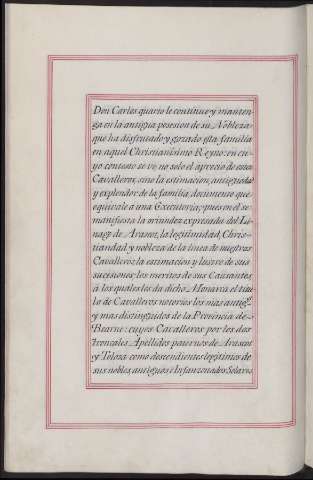 Don Carlos quarto le continue y manten-
ga en la antigua posesion de su Nobleza
que ha disfrutado y gozado esta familia
en aquel Christianisimo Reyno: en cu-
yo contesto se ve no solo el aprecio de estos
Cavalleros, sino la estimacion, antiguedad
y explendor de la familia, documento que
equivale a una Executoria; pues en el se
manifiesta la oriundez expresada del Li-
nage de Arascot, la legitimidad, Chris-
tiandad y nobleza de la linea de nuestros
Cavalleros; la estimacion y lustre de sus
sucesiones; los meritos de sus Causantes,
à los quales les da dicho Monarca el titu-
lo de Cavalleros notorios los mas antig.^s
y mas distinguidos de la Provincia de
Bearne: cuyos Cavalleros por los dos
troncales Apellidos paternos de Arascot
y Toloza como descendientes legitimos de
sus nobles, antiguos è Infanzonados Solares